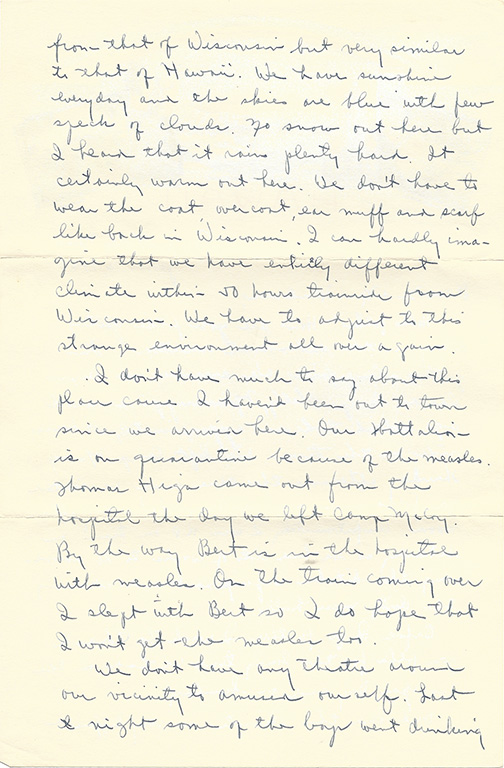 from that of Wisconsin but very similar
to that of Hawaii. We have sunshine
everyday and the skies are blue with few
speck of clouds. No snow out here but
I heard that it rains plenty hard. It
certainly warm out here. We don't have to
wear the coat, overcoat, ear muff and scarf
like back in Wisconsin. I can hardly ima-
gine that we have entirely different
climate within 50 hours trainride from
Wisconsin. We have to adjust to this
strange environment all over again.
I don't have much to say about this
place cause I haven't been out to town
since we arrived here. Our Battalion
is on quarantine because of the measles.
Thomas Higa came out from the
hospital the day we left Camp McCoy.
By the way Bert is in the hospital
with measles. On the train coming over
I slept with Bert so I do hope that
I won't get the measles too.
We don't have any theatre around
our vicinity to amused ourself. Last
night some of the boys went drinking